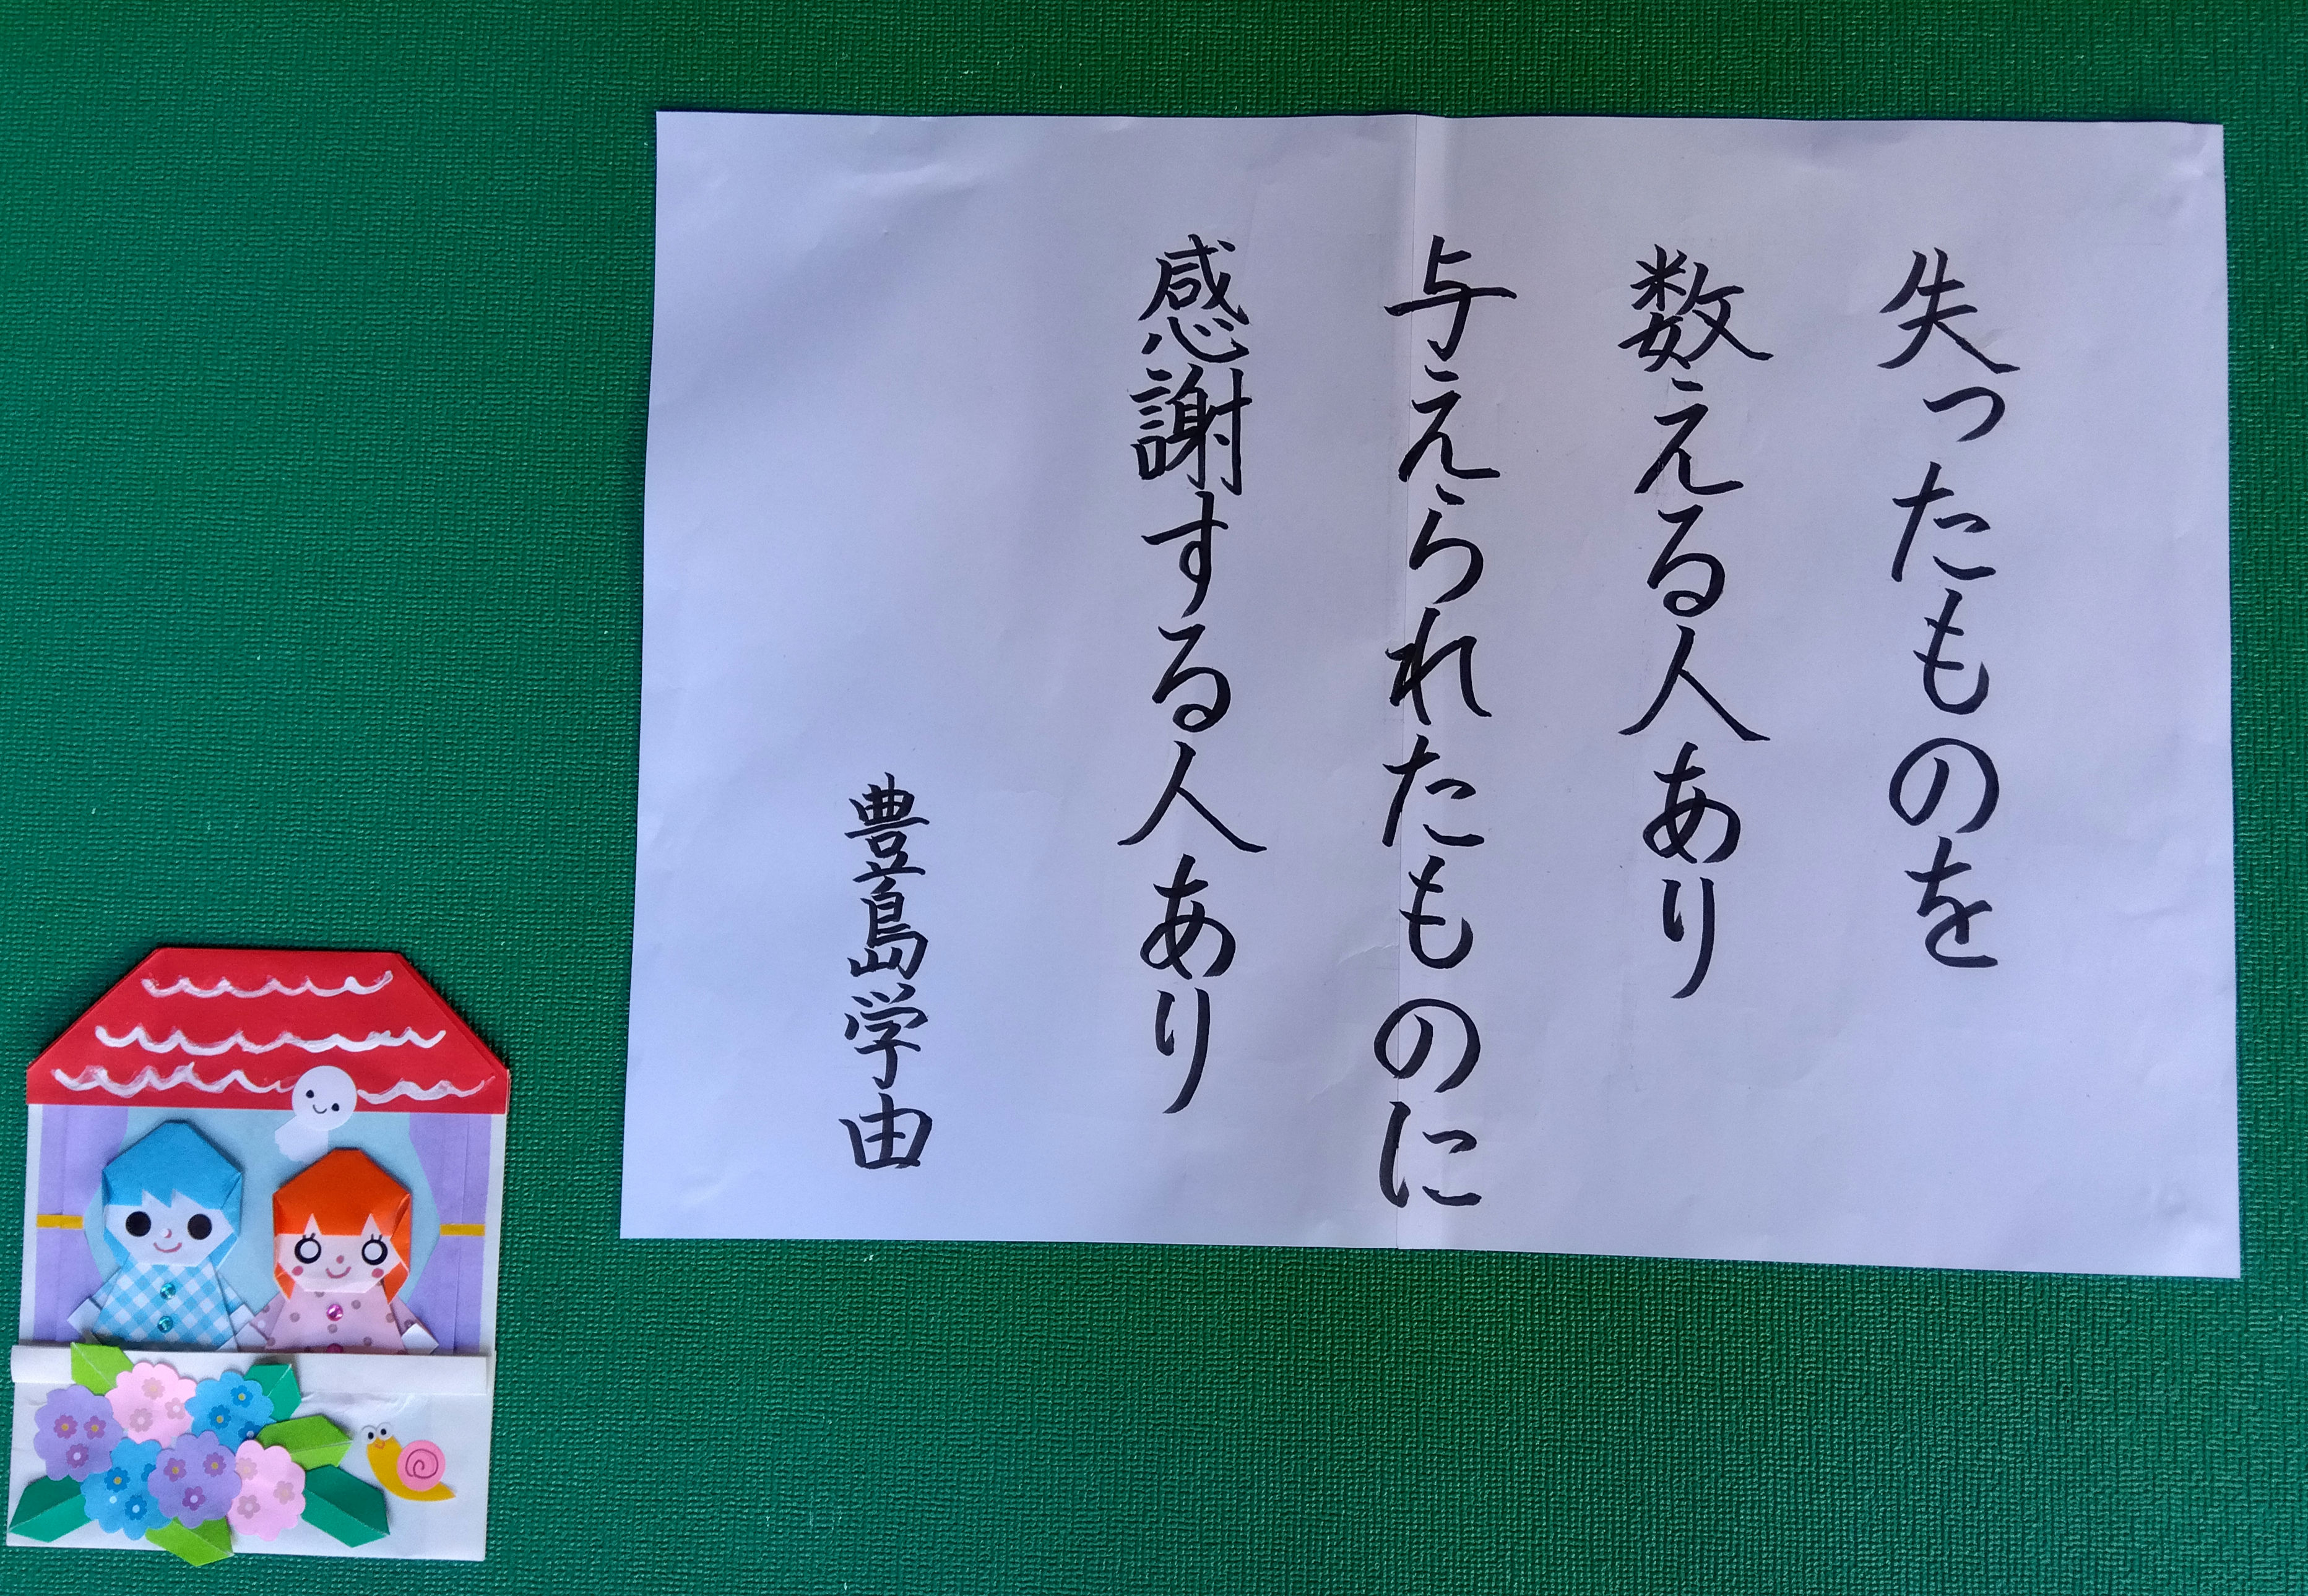 失ったものを
数える人あり
与えられたものに
感謝する人あり
豊島学由